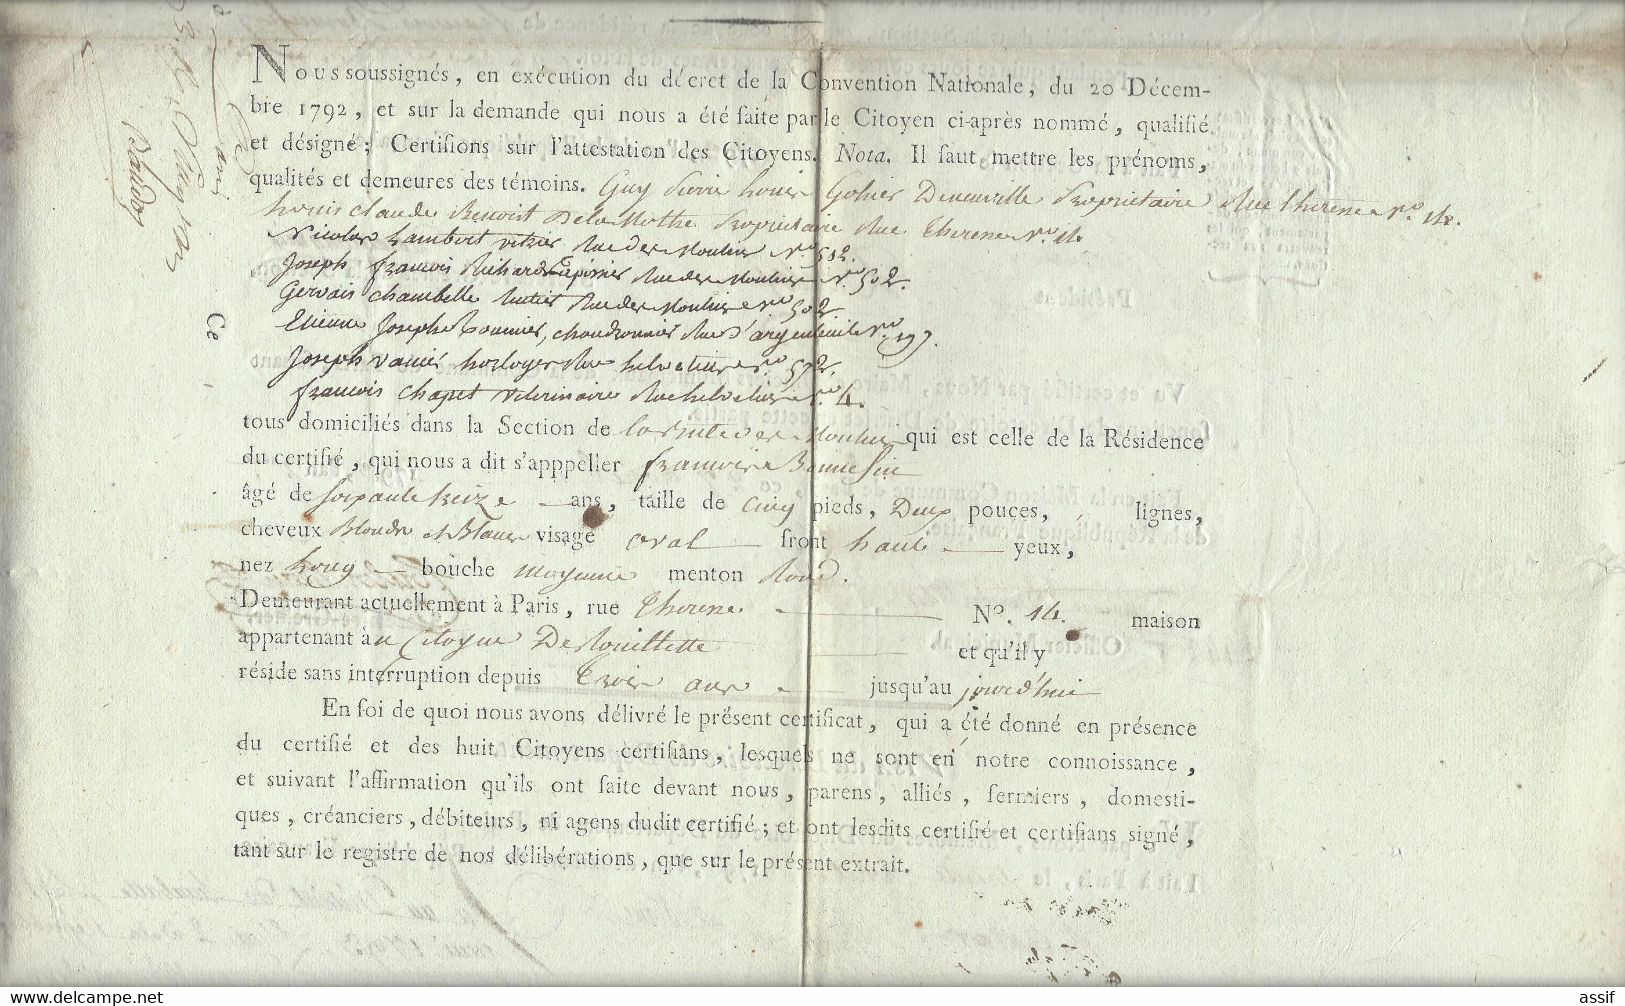 Nous soussignés, en exécution du décret de la Convention Nationale, du 20 Décem-
bre 1792, et sur la demande qui nous a été faite par le Citoyen ci-après nommé, qualifié
et désigné; Certifions sur l'attestation des Citoyens. Nota. Il faut mettre les prénoms,
qualités et demeures des témoins. Guy Pierre Louis Gohier Deneuville Proprietaire Rue Therese No. 14.
Louis Claude Benoist Delamothe Proprietaire Rue Therese No. 14
Nicolas Lambert vitrier Rue des Moulins No. 502.
Joseph francois Richard Epissier Rue des Moulins No. 502.
Gervais Chambelle Rue des Moulins No. 502
Etienne Joseph chaudronnier Rue d'argenteuil No. 197.
Joseph vanié horloger Rue helvetius No. 572.
francois Chapet veterinaire Rue helvetius No. 4.
tous domiciliés dans la Section de la Butte des Moulins qui est celle de la Résidence
du certifié, qui nous a dit s'apppeller francoise Bonnefin
âgé de soixante treize ans, taille de cinq pieds, Deux pouces, lignes,
cheveux Blonds et Blancs visage oval front haut yeux,
nez Long bouche moyenne menton Rond.
Demeurant actuellement à Paris, rue Therese No. 14. maison
appartenant à Citoyen Derouillette et qu'il y
réside sans interruption depuis trois ans jusqu'au jourd'hui
En foi de quoi nous avons délivré le présent certificat, qui a été donné en présence
du certifié et des huit Citoyens certifians, lesquels ne sont en notre connoissance,
et suivant l'affirmation qu'ils ont faite devant nous, parens, alliés, fermiers, domesti-
ques, créanciers, débiteurs, ni agens dudit certifié; et ont lesdits certifié et certifians signé,
tant sur le registre de nos délibérations, que sur le présent extrait.
Ce
www.delcampe.net
assif